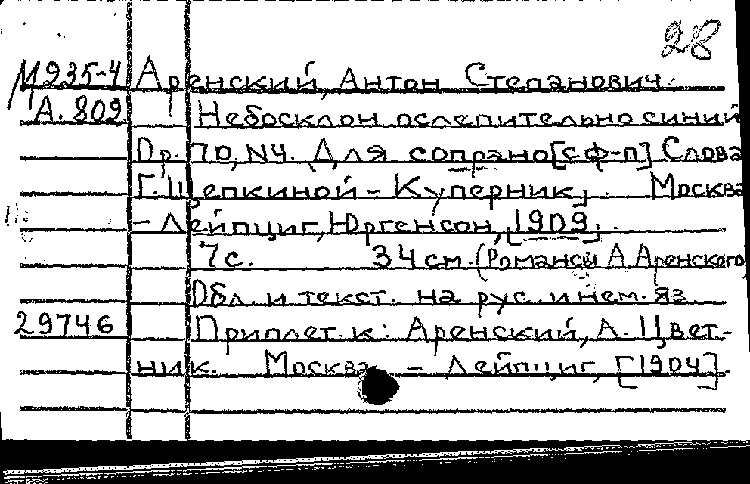 28
М935-4 Аренский, Антон Степанович.
А.809 Небосклон ослепительно синий
Ор.70, N4. Для сопрано [с ф-п] Слова
Г. Щепкиной-Куперник. Москва
- Лейпциг, Юргенсон, [1909].
7с. 34см. (Романсы А. Аренского)
Обл. и текст. на рус. и нем. яз.
29746 Приплет. к: Аренский, А. Цвет-
ник. Москва - Лейпциг, [1904]